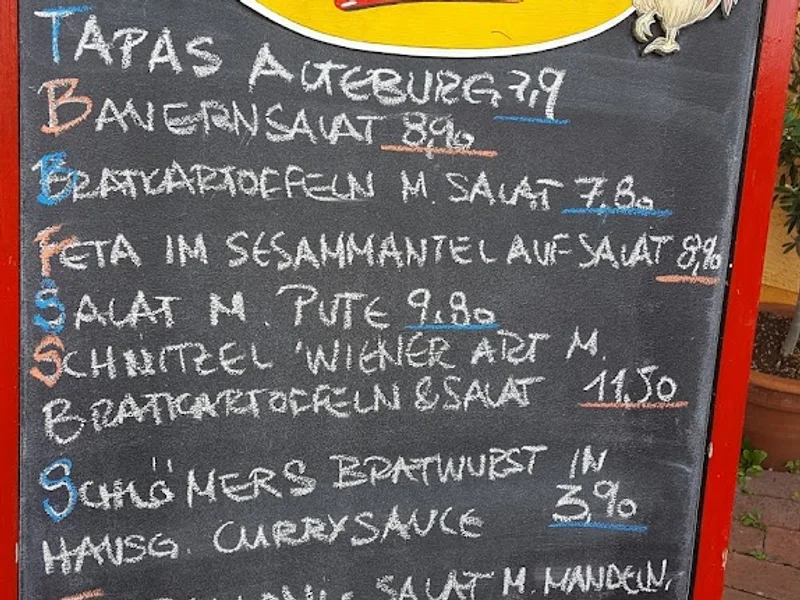 TAPAS ALTEBURG 7,9
BAUERNSALAT 8,90
BRATKARTOFFELN M. SALAT 7.80
FETA IM SESAMMANTEL AUF SALAT 8,90
SALAT M. PUTE 9.80
SCHNITZEL 'WIENER ART M.
BRATKARTOFFELN & SALAT 11,50
SCHLÖMERS BRATWURST IN
HAUSG. CURRYSAUCE 3,90
SALAT M. MANDELN,